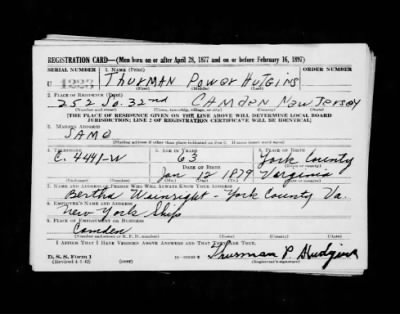 REGISTRATION CARD—(Men born on or after April 28, 1877 and on or before February 16, 1897)
SERIAL NUMBER 1. NAME (Print) ORDER NUMBER
U Thurman Power Hutgins
2. PLACE OF RESIDENCE (Print)
252 So. 32nd Camden New Jersey
[THE PLACE OF RESIDENCE GIVEN ON THE LINE ABOVE WILL DETERMINE LOCAL BOARD
JURISDICTION; LINE 2 OF REGISTRATION CERTIFICATE WILL BE IDENTICAL]
3. MAILING ADDRESS
SAME
[Mailing address if other than place indicated on line 2. If same insert word same]
4. TELEPHONE 5. AGE IN YEARS 6. PLACE OF BIRTH
C. 4441-W 63 York County
DATE OF BIRTH
Jan 12 1879 Virginia
7. NAME AND ADDRESS OF PERSON WHO WILL ALWAYS KNOW YOUR ADDRESS
Bertha Wainright - York County Va.
8. EMPLOYER'S NAME AND ADDRESS
New York Ship
9. PLACE OF EMPLOYMENT OR BUSINESS
Camden
I AFFIRM THAT I HAVE VERIFIED ABOVE ANSWERS AND THAT THEY ARE TRUE.
D. S. S. Form 1 Thurman P. Hudgins
(Revised 4-1-42) (Registrant's signature)